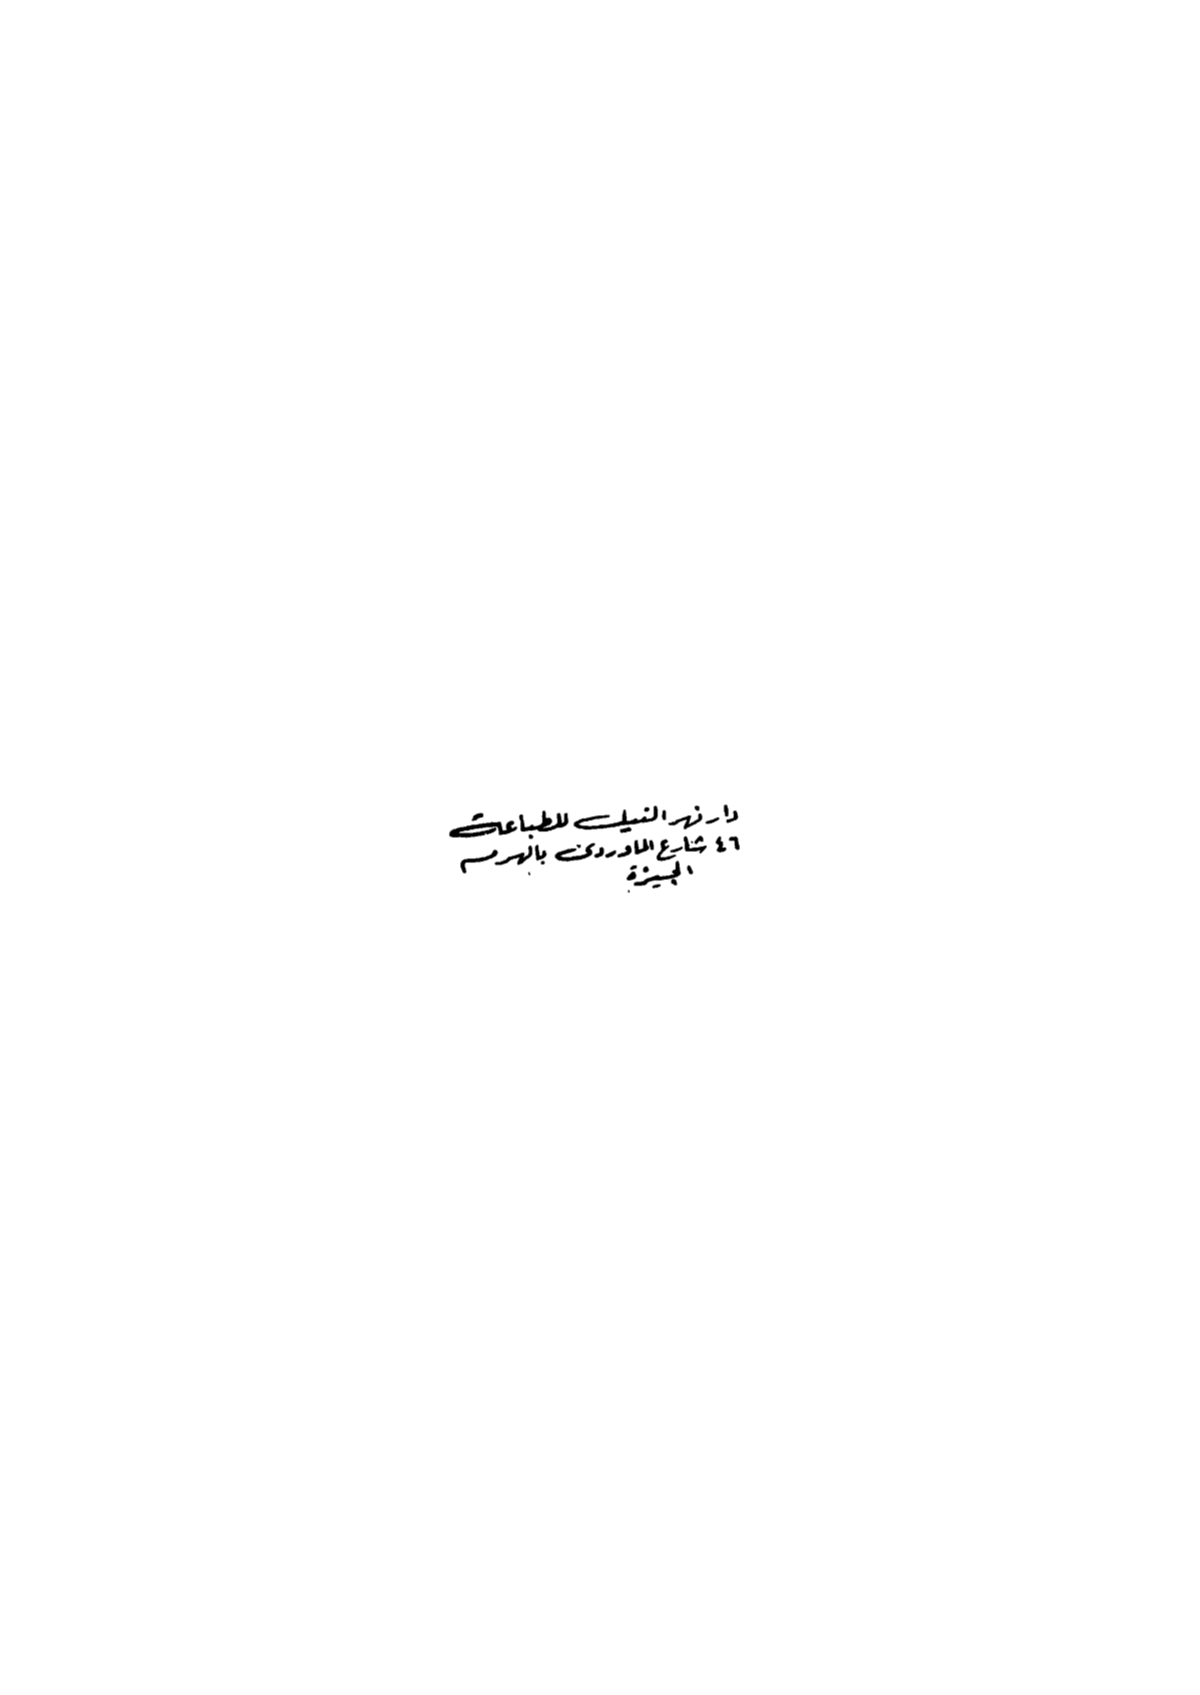 دار نهر النيل للطباعة
٤٦ شارع الماوردى بالهرم
الجيزة